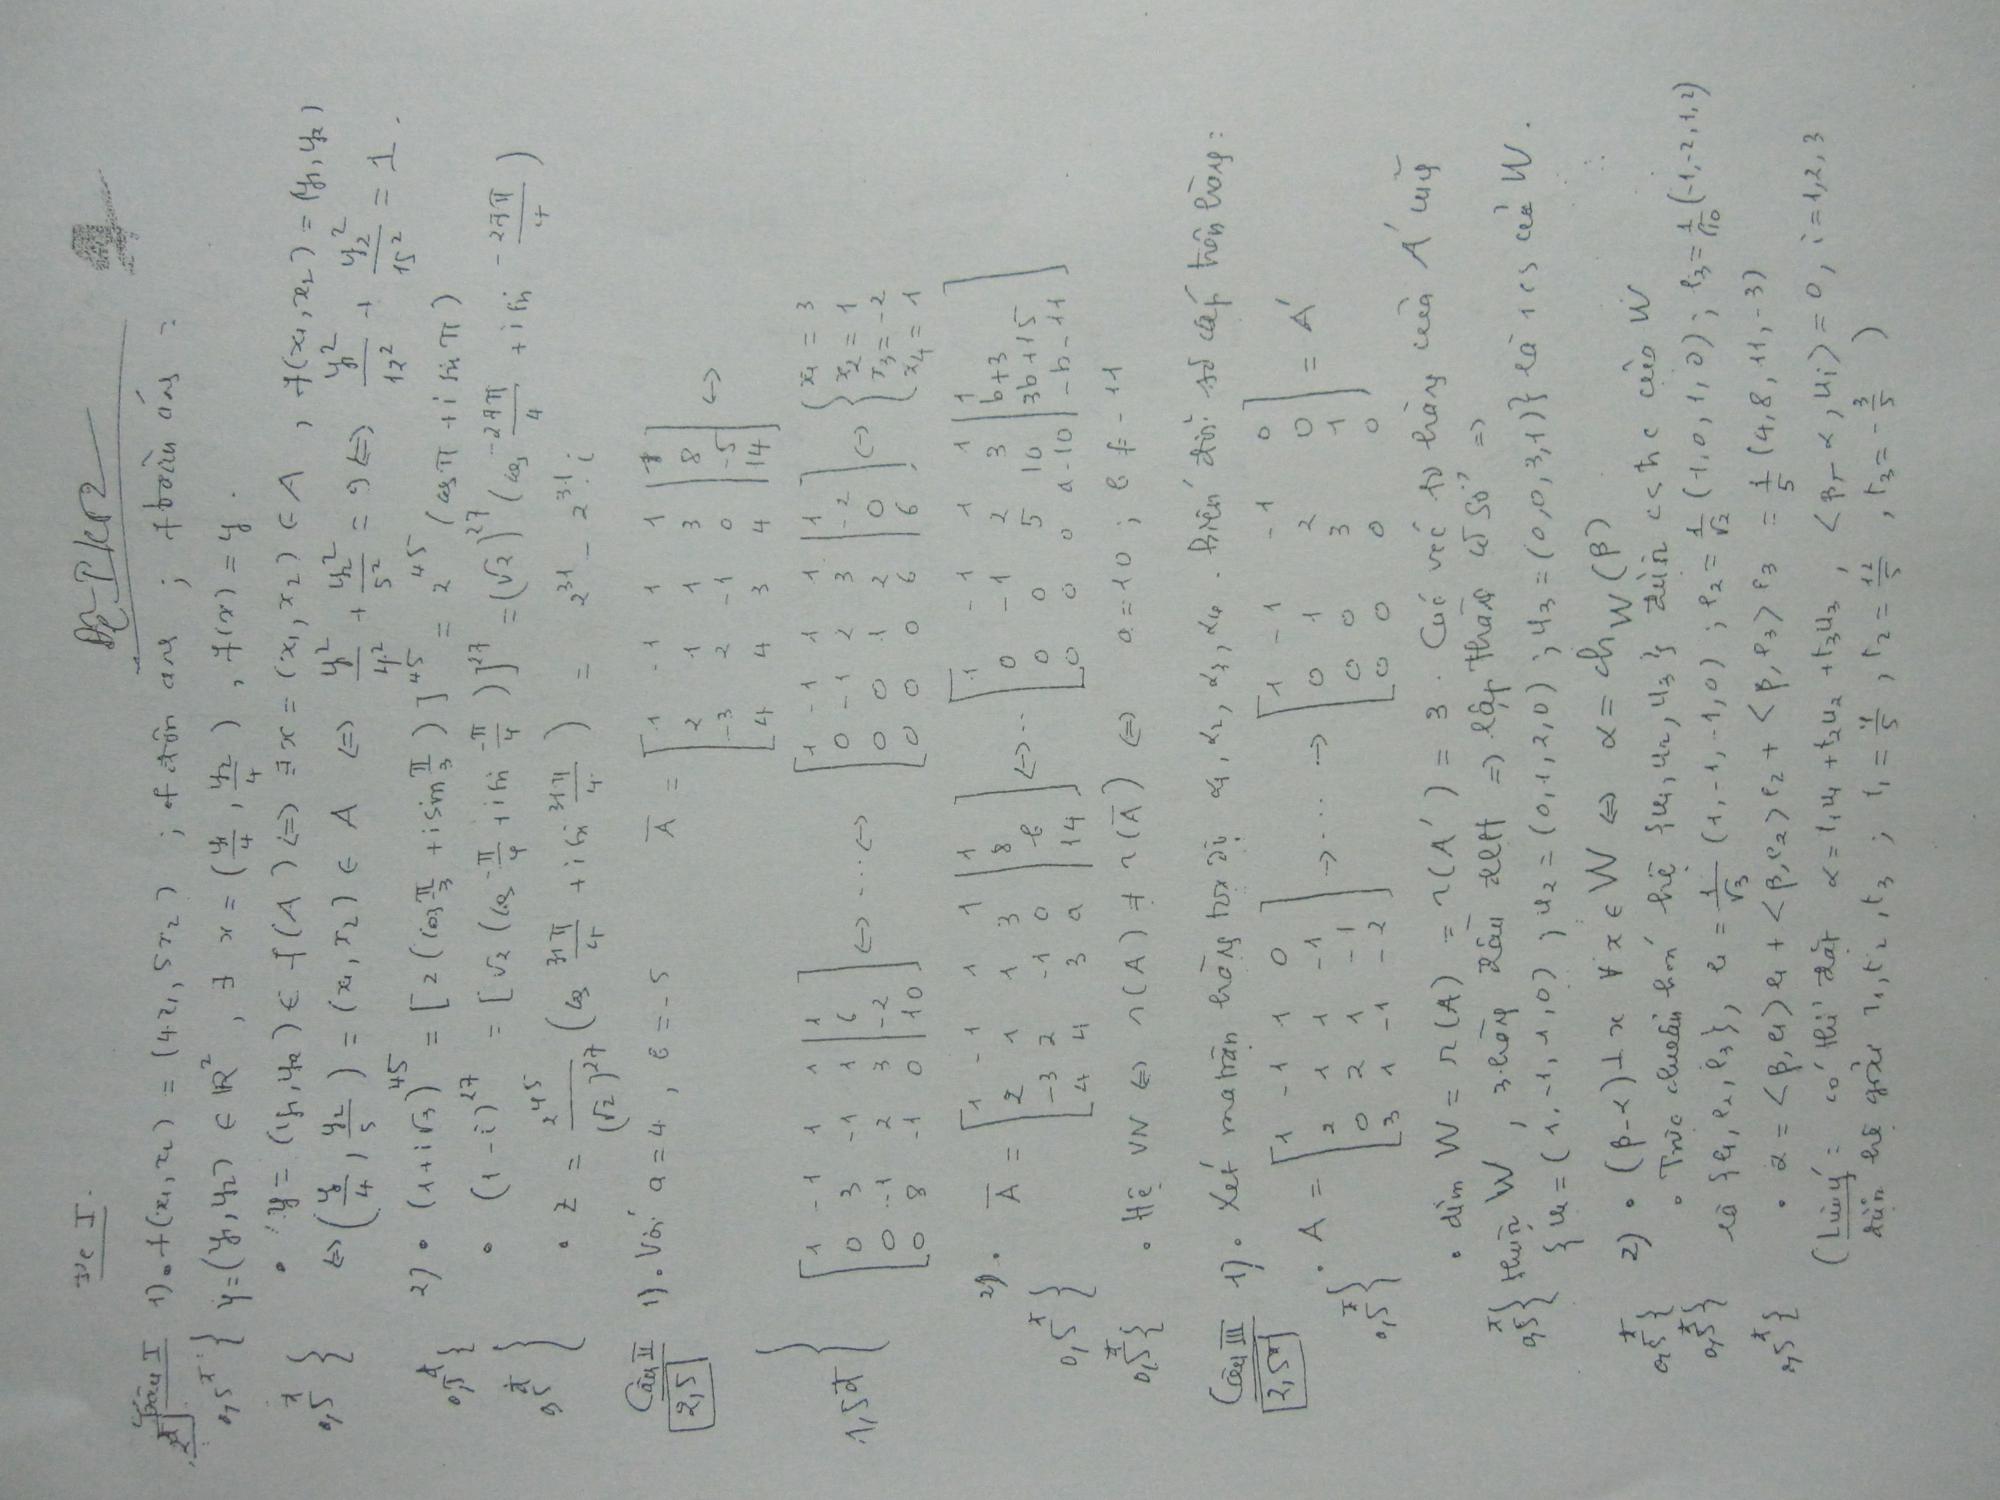 Đề I.
Đề I K52
Câu I 1). f(x₁, x₂) = (4x₁, 5x₂) ; f đơn ánh ; f toàn ánh :
2đ
0,5đ { y = (y₁, y₂) ∈ ℝ², ∃ x = (y₁/4, y₂/4), f(x) = y.
0,5đ { • y = (y₁, y₂) ∈ f(A) ⇔ ∃ x = (x₁, x₂) ∈ A, f(x₁, x₂) = (y₁, y₂)
⇔ (y₁/4, y₂/5) = (x₁, x₂) ∈ A ⇔ y₁²/4² + y₂²/5² = 9 ⇔ y₁²/12² + y₂²/15² = 1.
0,5đ { 2) • (1+i√3)⁴⁵ = [2(cos π/3 + i sin π/3)]⁴⁵ = 2⁴⁵ (cos π + i sin π)
0,5đ { • (1-i)²⁷ = [√2 (cos -π/4 + i sin -π/4)]²⁷ = (√2)²⁷ (cos -27π/4 + i sin -27π/4)
• z = 2⁴⁵/(√2)²⁷ (cos 31π/4 + i sin 31π/4) = 2³¹ - 2³¹.i
Câu II 1). Với a = 4, b = -5 Ā = [1 -1 1 1 | 1
2,5
2 1 1 3 | 8
-3 2 -1 0 | -5
4 4 3 4 | 14] ↔
1,5đ { [1 -1 1 1 | 1 [1 -1 1 1 | 1 { x₁ = 3
0 3 -1 1 | 6 ↔ ... ↔ 0 -1 2 3 | -2 ↔ x₂ = 1
0 -1 2 3 | -2 0 0 1 2 | 0 x₃ = -2
0 8 -1 0 | 10] 0 0 0 6 | 6] x₄ = 1
2) • Ā = [1 -1 1 1 | 1 [1 -1 1 1 | 1
2 1 1 3 | 8 ↔ .. 0 -1 2 3 | b+3
0,5đ { -3 2 -1 0 | b 0 0 5 10 | 3b+15
4 4 3 a | 14] 0 0 0 a-10 | -b-11]
0,5đ { • Hệ VN ⇔ r(A) ≠ r(Ā) ⇔ a = 10 ; b ≠ -11
Câu III 1). Xét ma trận hàng toạ độ α₁, α₂, α₃, α₄. Biến đổi sơ cấp trên hàng:
2,5đ
• A = [1 -1 1 0 [1 -1 -1 0
2 1 1 -1 → ... → 0 1 2 0 = A'
0,5đ { 0 2 1 -1 0 0 3 1
3 1 -1 -2] 0 0 0 0]
• dim W = r(A) = r(A') = 3. Các véc tơ hàng của A' cũng
0,5đ { thuộc W, 3 hàng đầu ĐLTT ⇒ lập thành cơ sở ⇒
{u₁ = (1, -1, 1, 0) ; u₂ = (0, 1, 2, 0) ; u₃ = (0, 0, 3, 1)} là 1 cs của W.
0,5đ { 2) • (β-α) ⊥ x ∀ x ∈ W ⇔ α = ch_W(β)
• Trực chuẩn hoá hệ {u₁, u₂, u₃} được cs tr c của W
0,5đ { là {e₁, e₂, e₃}, e₁ = 1/√3 (1, -1, -1, 0) ; e₂ = 1/√2 (1, 0, 1, 0) ; e₃ = 1/√10 (-1, -2, 1, 2)
0,5đ { • α = <β, e₁> e₁ + <β, e₂> e₂ + <β, e₃> e₃ = 1/5 (4, 8, 11, -3)
(Lưu ý: có thể đặt α = t₁u₁ + t₂u₂ + t₃u₃, <β-α, uᵢ> = 0, i = 1,2,3
đưa hệ giải t₁, t₂, t₃ ; t₁ = 4/5, t₂ = 12/5, t₃ = -3/5 )